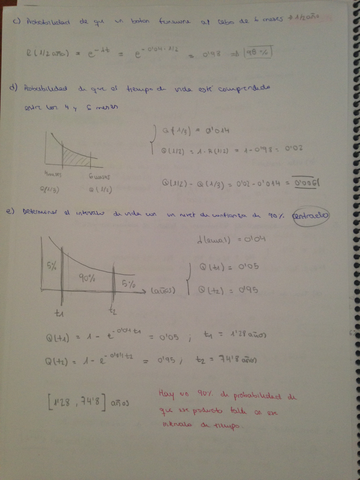 c) Probabilidad de que un bator funcione al cabo de 6 meses → 1/2 año
R(1/2 año) = e^-λt = e^-0'04·1/2 = 0'98 → 98%
d) Probabilidad de que el tiempo de vida esté comprendido
entre los 4 y 6 meses
Q(1/3) = 0'014
Q(1/2) = 1 - R(1/2) = 1 - 0'98 = 0'02
4 meses
6 meses
Q(1/3)
Q(1/2)
Q(1/2) - Q(1/3) = 0'02 - 0'014 = 0'006
e) Determinar el intervalo de vida con un nivel de confianza del 90% (centrado)
λ(anual) = 0'04
5%
90%
5%
t (años)
t1
t2
Q(t1) = 0'05
Q(t2) = 0'95
Q(t1) = 1 - e^-0'04·t1 = 0'05 ; t1 = 1'28 años
Q(t2) = 1 - e^-0'04·t2 = 0'95 ; t2 = 74'8 años
[1'28 , 74'8] años
Hay un 90% de probabilidad de
que un producto falle en ese
intervalo de tiempo.